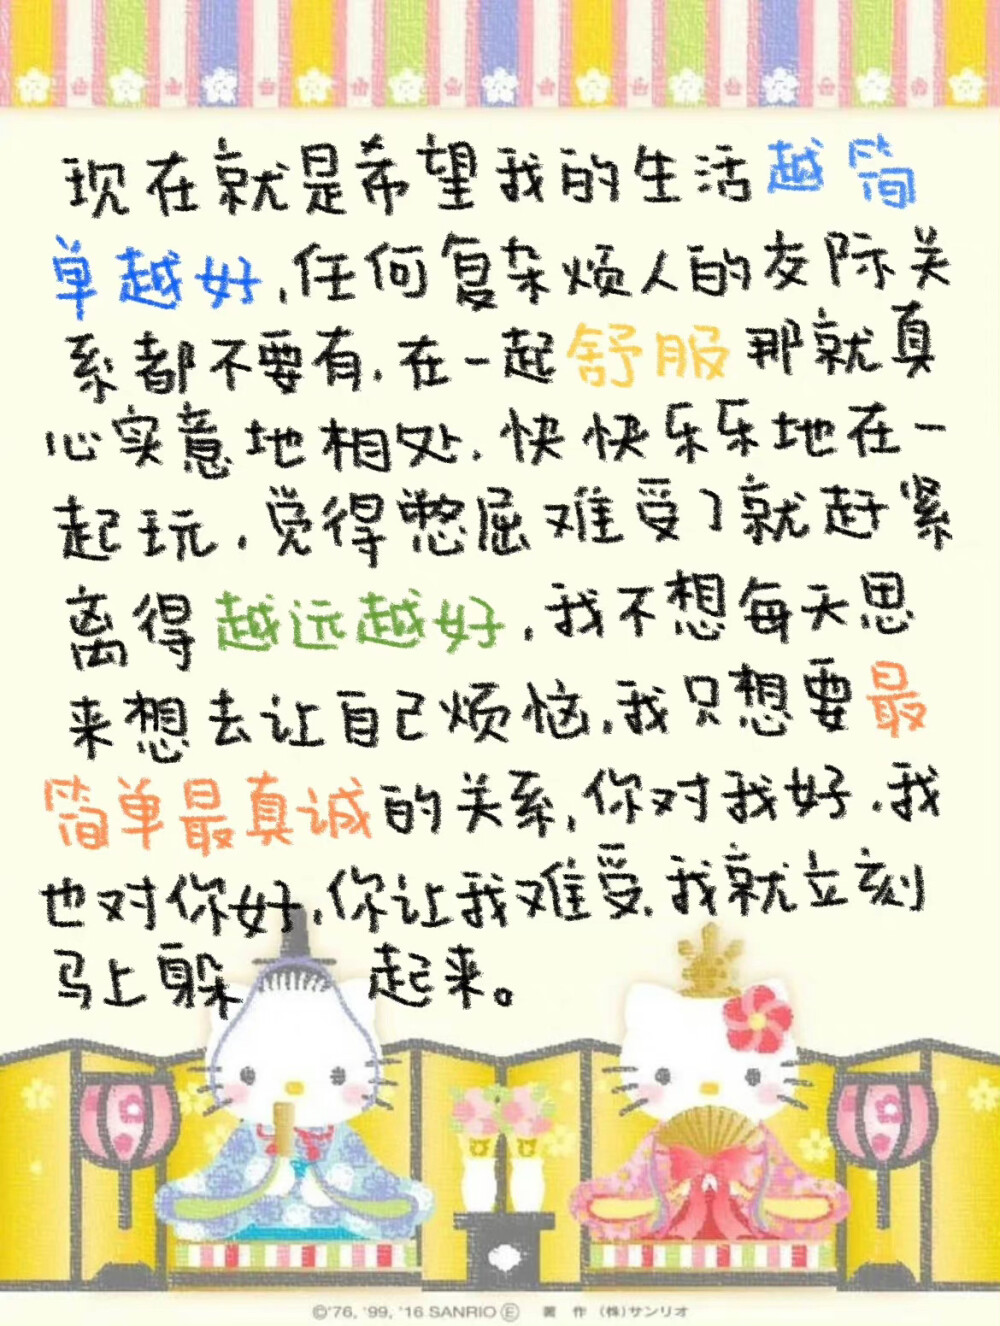 现在就是希望我的生活越简
单越好,任何复杂烦人的友际关
系都不要有,在一起舒服那就真
心实意地相处,快快乐乐地在一
起玩,觉得憋屈难受了就赶紧
离得越远越好,我不想每天思
来想去让自己烦恼,我只想要最
简单最真诚的关系,你对我好,我
也对你好,你让我难受,我就立刻
马上躲 起来。
©'76, '99, '16 SANRIO Ⓔ 著 作 (株)サンリオ